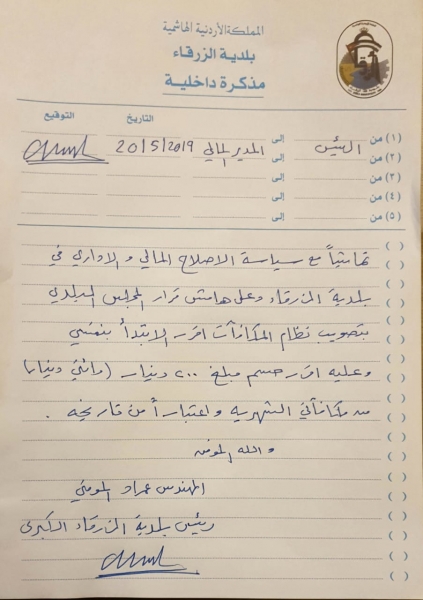 المملكة الأردنية الهاشمية
بلدية الزرقاء
مذكرة داخلية
التاريخ التوقيع
(١) من الرئيس إلى المدير المالي 20/5/2019
(٢) من إلى
(٣) من إلى
(٤) من إلى
(٥) من إلى
تماشياً مع سياسة الاصلاح المالي و الاداري في
بلدية الزرقاء وعلى هامش قرار المجلس البلدي
بتصويب نظام المكافآت اقرر الابتدأ بنفسي
وعليه اقرر حسم مبلغ ٢٠٠ دينار (مائتي دينار)
من مكافأتي الشهرية و اعتباراً من تاريخه .
و الله الموفق
المهندس عماد المومني
رئيس بلدية الزرقاء الكبرى